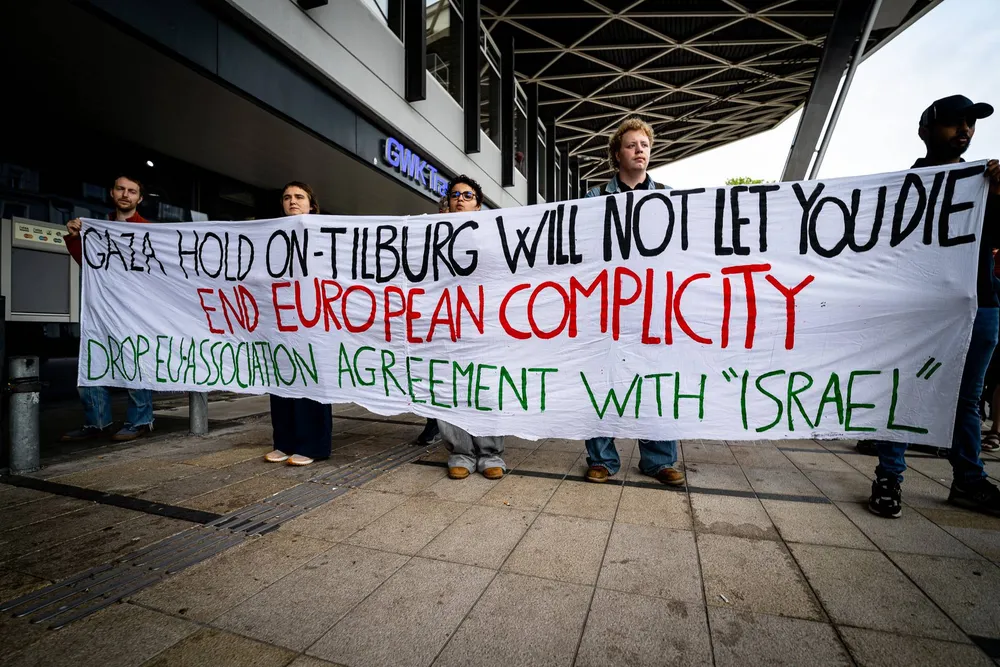 GWK Tra
GAZA HOLD ON-TILBURG WILL NOT LET YOU DIE
END EUROPEAN COMPLICITY
DROP EU-ASSOCIATION AGREEMENT WITH "ISRAEL"